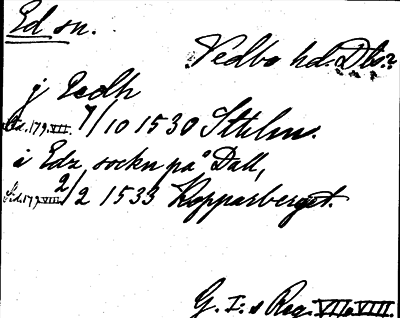 Ed sn.
Vedbo hd. Dls.
j Eedh
Sid. 179. VII. 7/10 1530 Sthlm.
i Edz sockn på Dall,
Sid. 179 VIII. 2/2 1533 Kopparberget.
G. I:s Reg. VII o VIII.